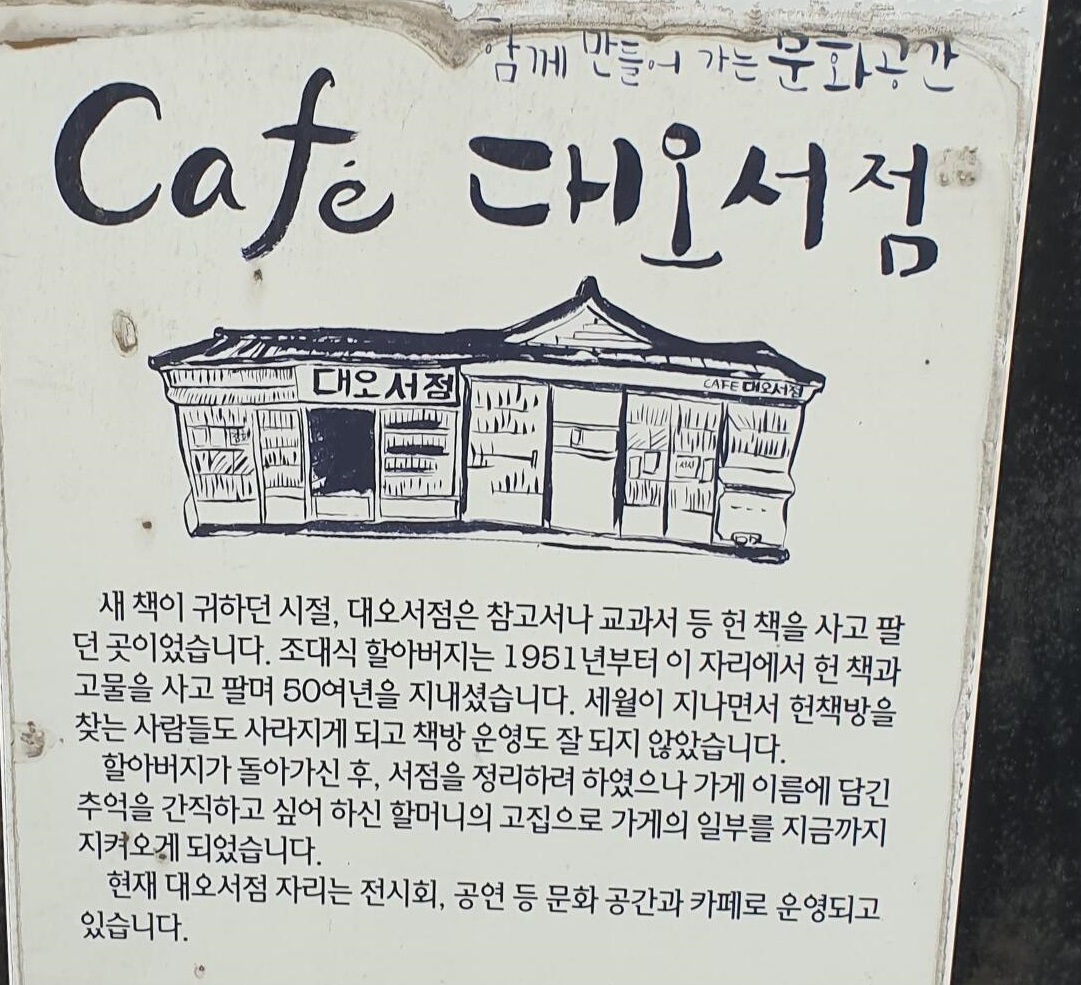 함께 만들어 가는 문화공간
Café 대오서점
대오서점
CAFE 대오서점
새 책이 귀하던 시절, 대오서점은 참고서나 교과서 등 헌 책을 사고 팔
던 곳이었습니다. 조대식 할아버지는 1951년부터 이 자리에서 헌 책과
고물을 사고 팔며 50여년을 지내셨습니다. 세월이 지나면서 헌책방을
찾는 사람들도 사라지게 되고 책방 운영도 잘 되지 않았습니다.
할아버지가 돌아가신 후, 서점을 정리하려 하였으나 가게 이름에 담긴
추억을 간직하고 싶어 하신 할머니의 고집으로 가게의 일부를 지금까지
지켜오게 되었습니다.
현재 대오서점 자리는 전시회, 공연 등 문화 공간과 카페로 운영되고
있습니다.